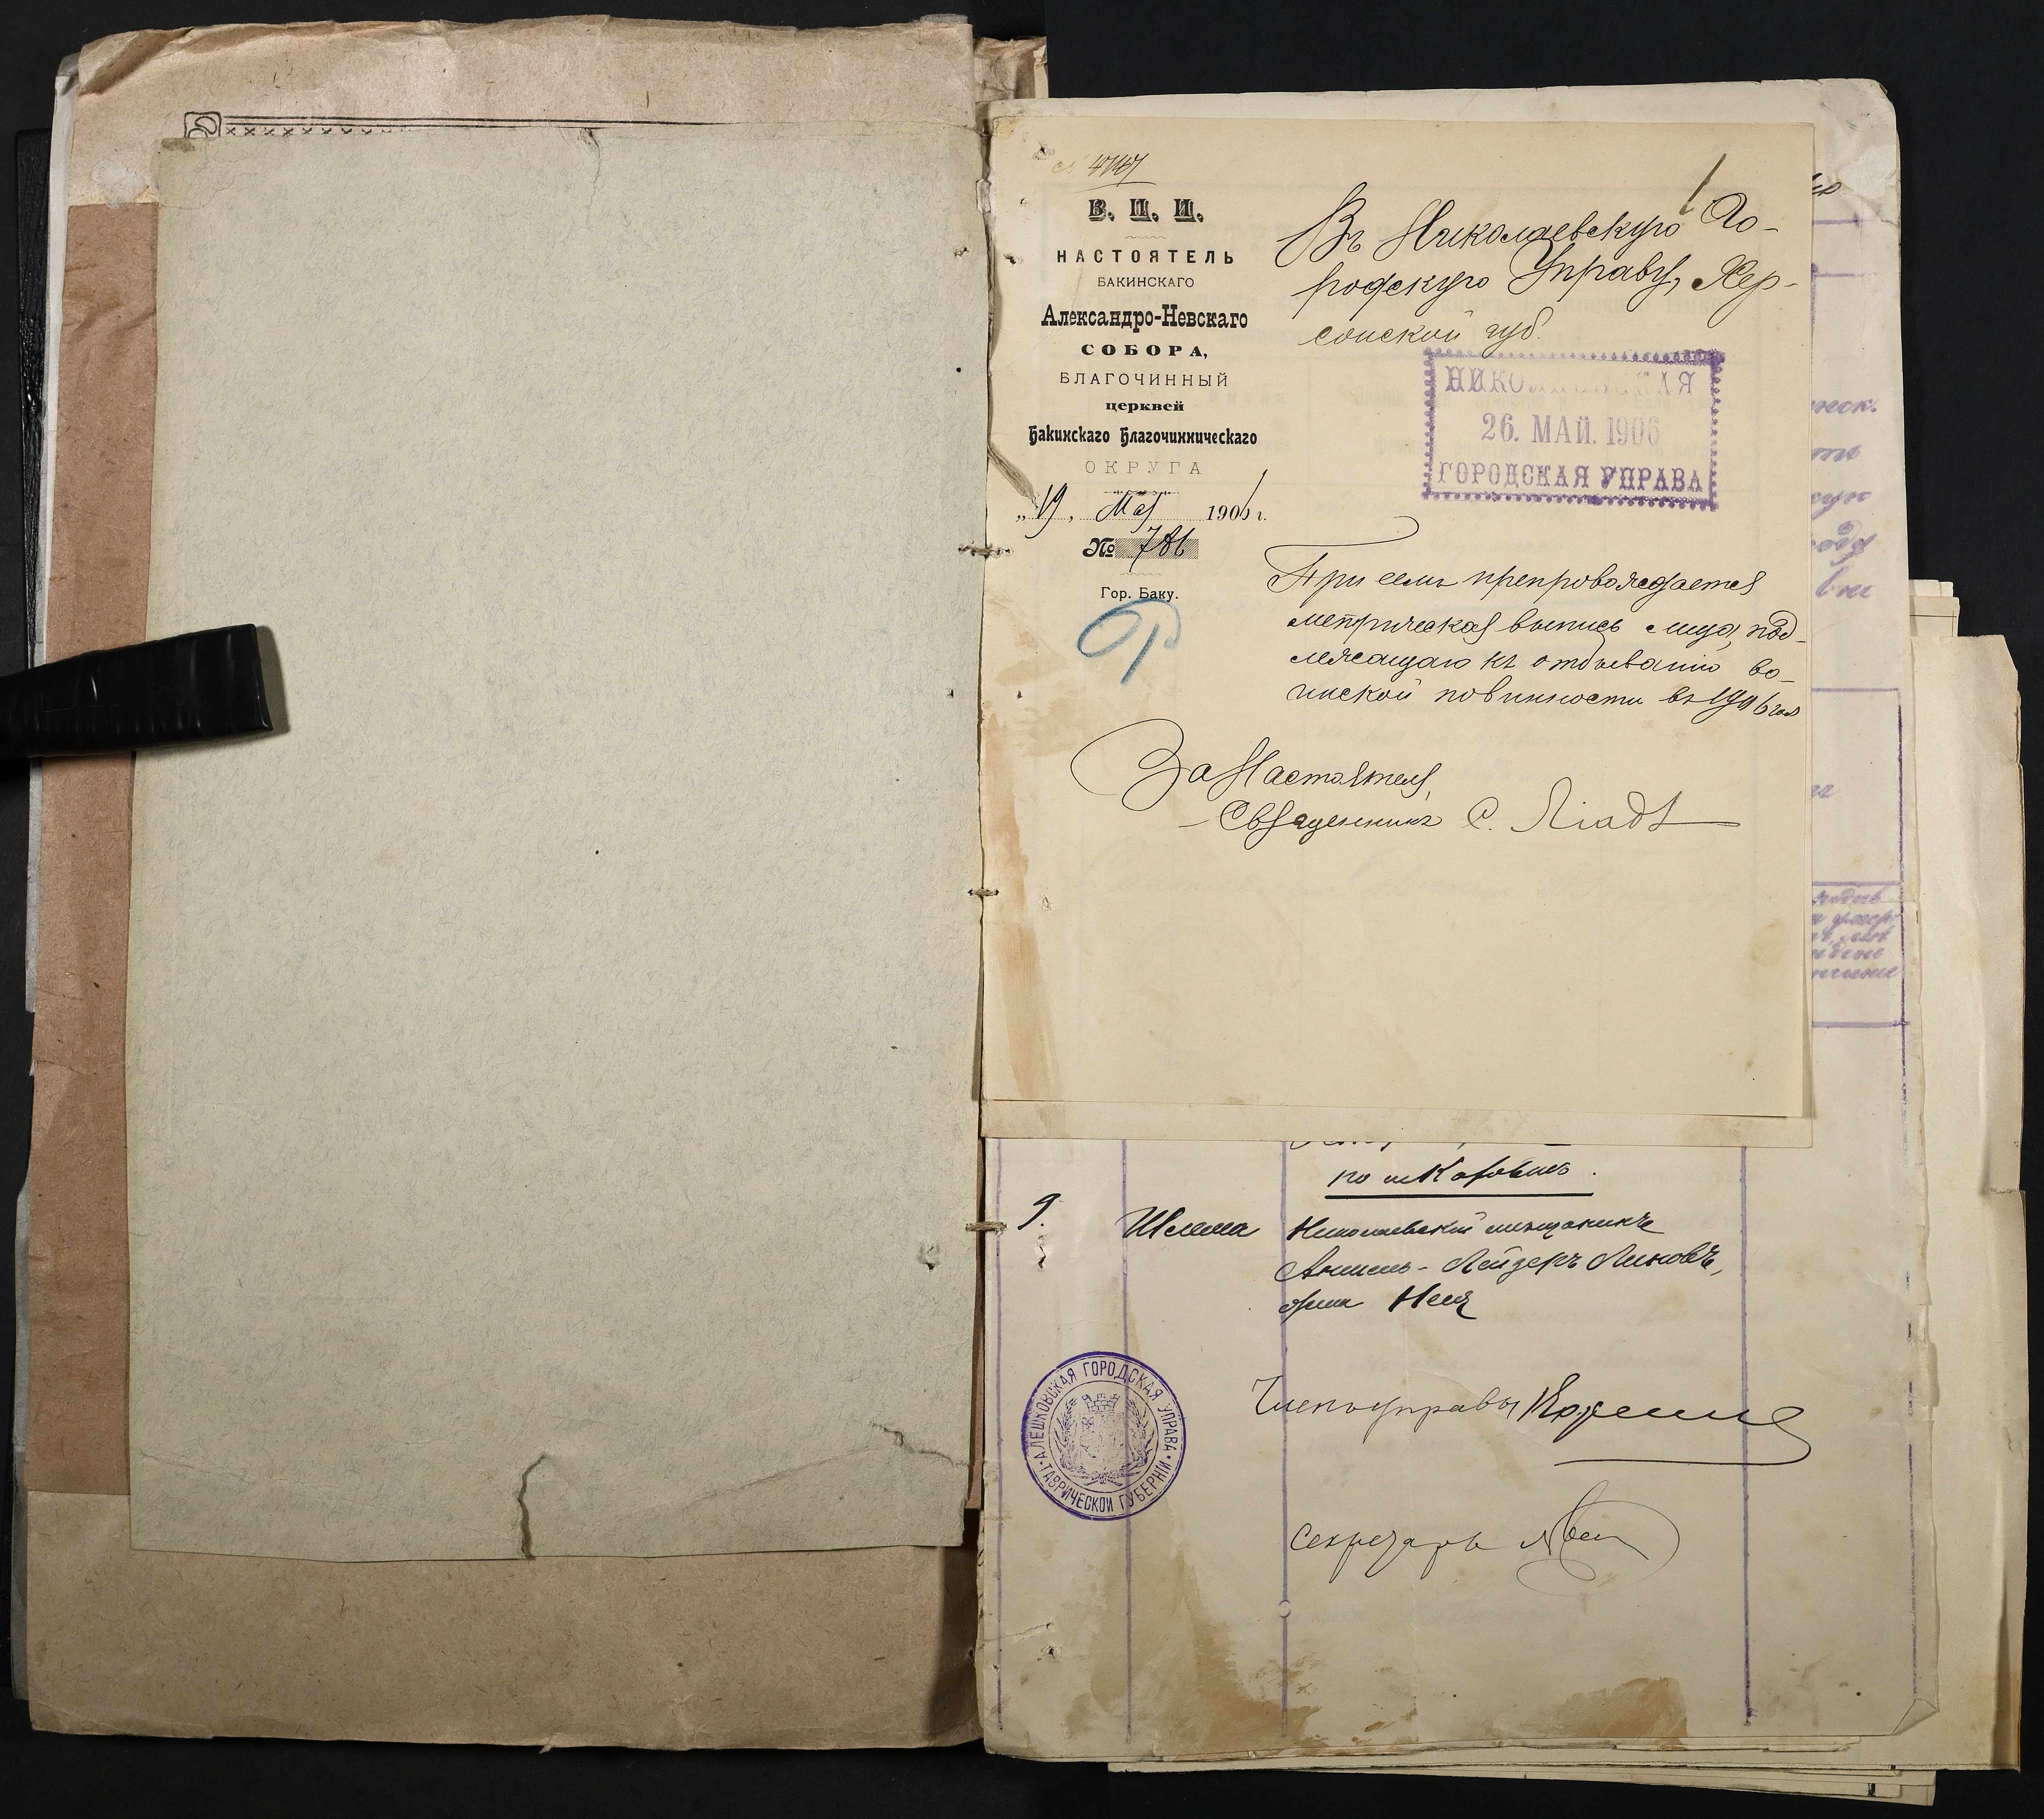 В. П. И.
НАСТОЯТЕЛЬ
БАКИНСКАГО
Александро-Невскаго
СОБОРА,
БЛАГОЧИННЫЙ
церквей
Бакинскаго Благочинническаго
ОКРУГА
„19„ Мая 1906 г.
№ 786
Гор. Баку.
1
Въ Николаевскую Го-
родскую Управу, Хер-
сонской губ.
НИКОЛАЕВСКАЯ
26. МАЙ. 1906
ГОРОДСКАЯ УПРАВА
При семъ препровождается
метрическая выпись лица, под-
лежащаго къ отбыванію во-
инской повинности въ 1906 год
За Настоятеля,
Священникъ С.
9.
Шлема
Николаевскій мещанинъ
Лейзеръ Линовъ,
Неся
АЛЕШКОВСКАЯ ГОРОДСКАЯ УПРАВА
ТАВРИЧЕСКОЙ ГУБЕРНІИ
Членъ управы
Секретарь